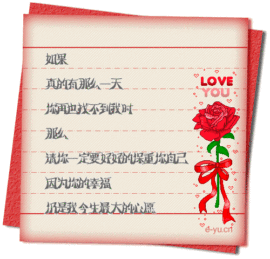 如果
真的有那么一天
你再也找不到我时
那么
请你一定要好好的保重你自己
因为你的幸福
抵是我今生最大的心愿
LOVE
YOU
e-yu.cn